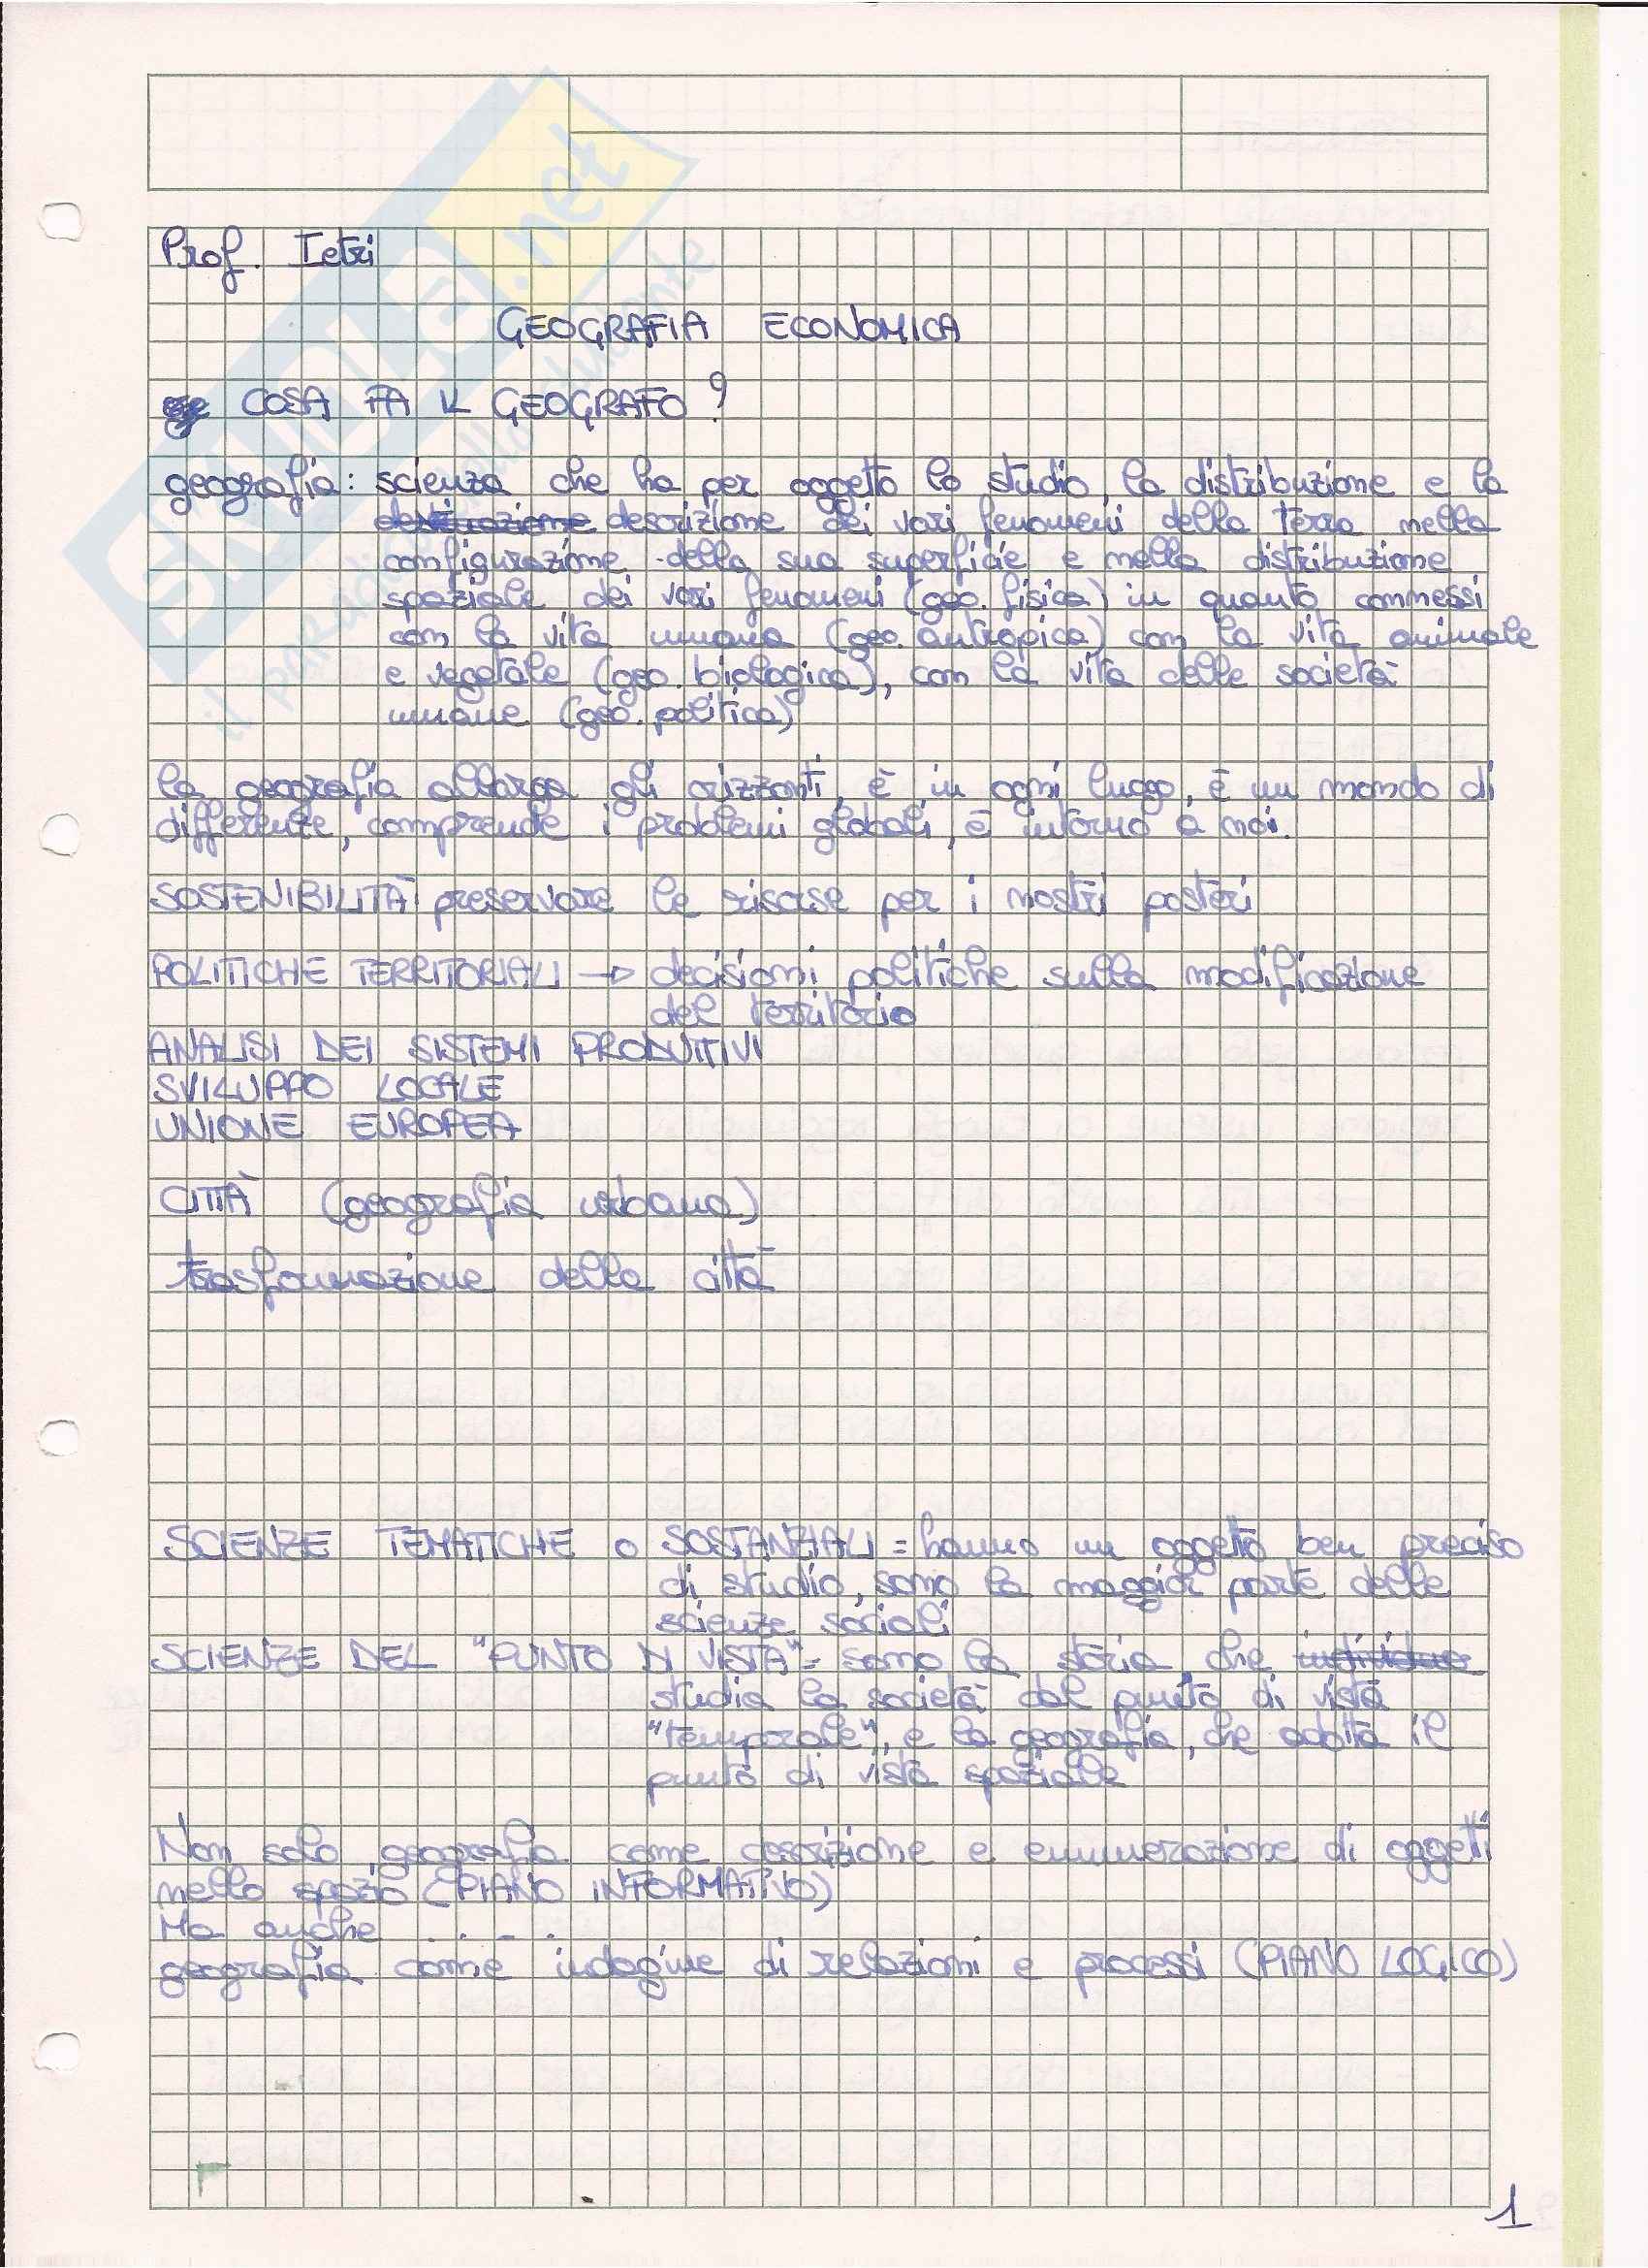 Prof. Ietri
GEOGRAFIA ECONOMICA
COSA FA IL GEOGRAFO?
geografia: scienza che ha per oggetto lo studio, la distribuzione e la
descrizione dei vari fenomeni della terra nella
configurazione della sua superficie e nella distribuzione
spaziale dei vari fenomeni (geo. fisica) in quanto connessi
con la vita umana (geo. antropica) con la vita animale
e vegetale (geo. biologica), con la vita delle società
umane (geo. politica)
la geografia allarga gli orizzonti, è in ogni luogo, è un mondo di
differenze, comprende i problemi globali, è intorno a noi.
SOSTENIBILITÀ: preservare le risorse per i nostri posteri
POLITICHE TERRITORIALI → decisioni politiche sulla modificazione
del territorio
ANALISI DEI SISTEMI PRODUTTIVI
SVILUPPO LOCALE
UNIONE EUROPEA
CITTÀ (geografia urbana)
trasformazione della città
SCIENZE TEMATICHE o SOSTANZIALI = hanno un oggetto ben preciso
di studio, sono la maggior parte delle
scienze sociali
SCIENZE DEL "PUNTO DI VISTA" = sono la storia, che
studia la società dal punto di vista
"temporale", e la geografia, che adotta il
punto di vista spaziale
Non solo geografia come descrizione e enumerazione di oggetti
nello spazio (PIANO INFORMATIVO)
Ma anche ....
geografia come indagine di relazioni e processi (PIANO LOGICO)
1
SKUOLA.net
il paradiso dello studente